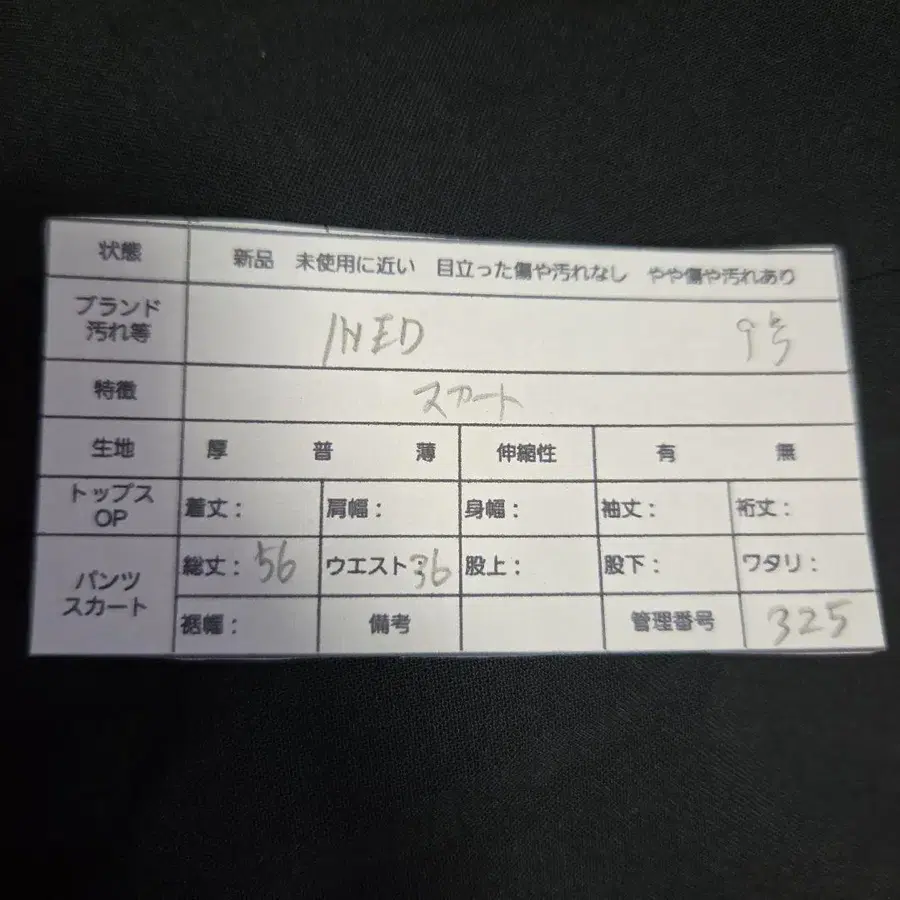 状態 新品 未使用に近い 目立った傷や汚れなし やや傷や汚れあり
ブランド 汚れ等 INED 9号
特徴 スカート
生地 厚 普 薄 伸縮性 有 無
トップス OP 着丈: 肩幅: 身幅: 袖丈: 裄丈:
パンツ スカート 総丈: 56 ウエスト: 36 股上: 股下: ワタリ:
裾幅: 備考 管理番号 325